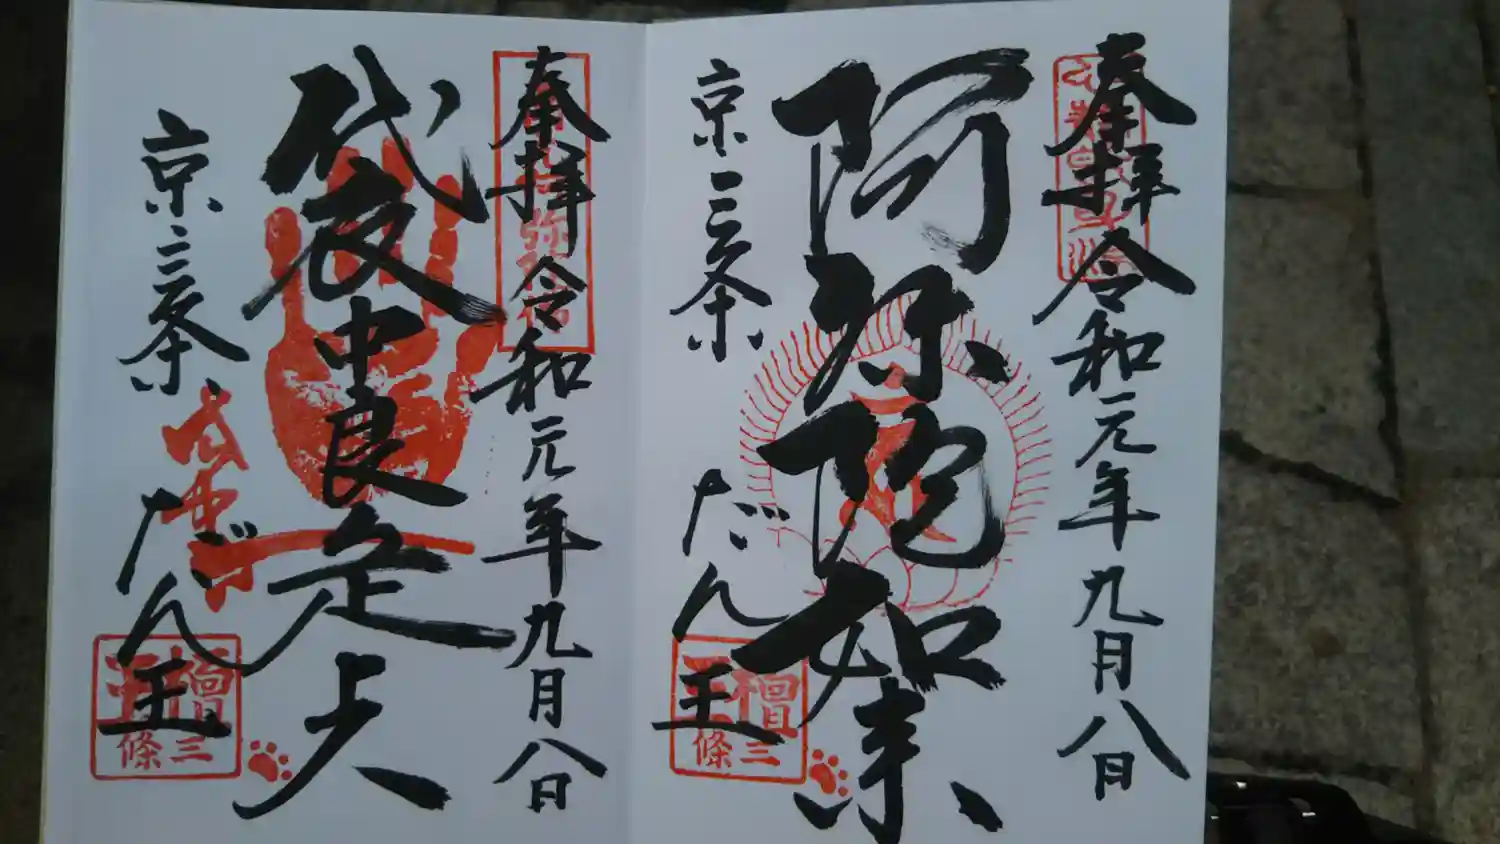 奉拝 令和元年九月八日
阿弥陀如来
京三条
だん王
三條
奉拝 令和元年九月八日
袋中良定上人
京三条
だん王
檀王
三條